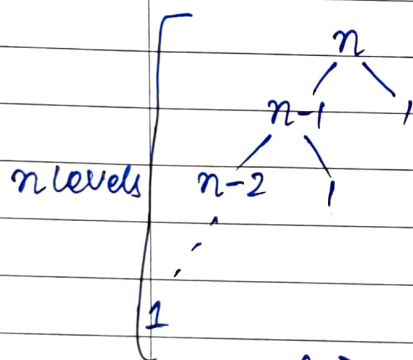 n
n-1 1
n levels n-2 1
1